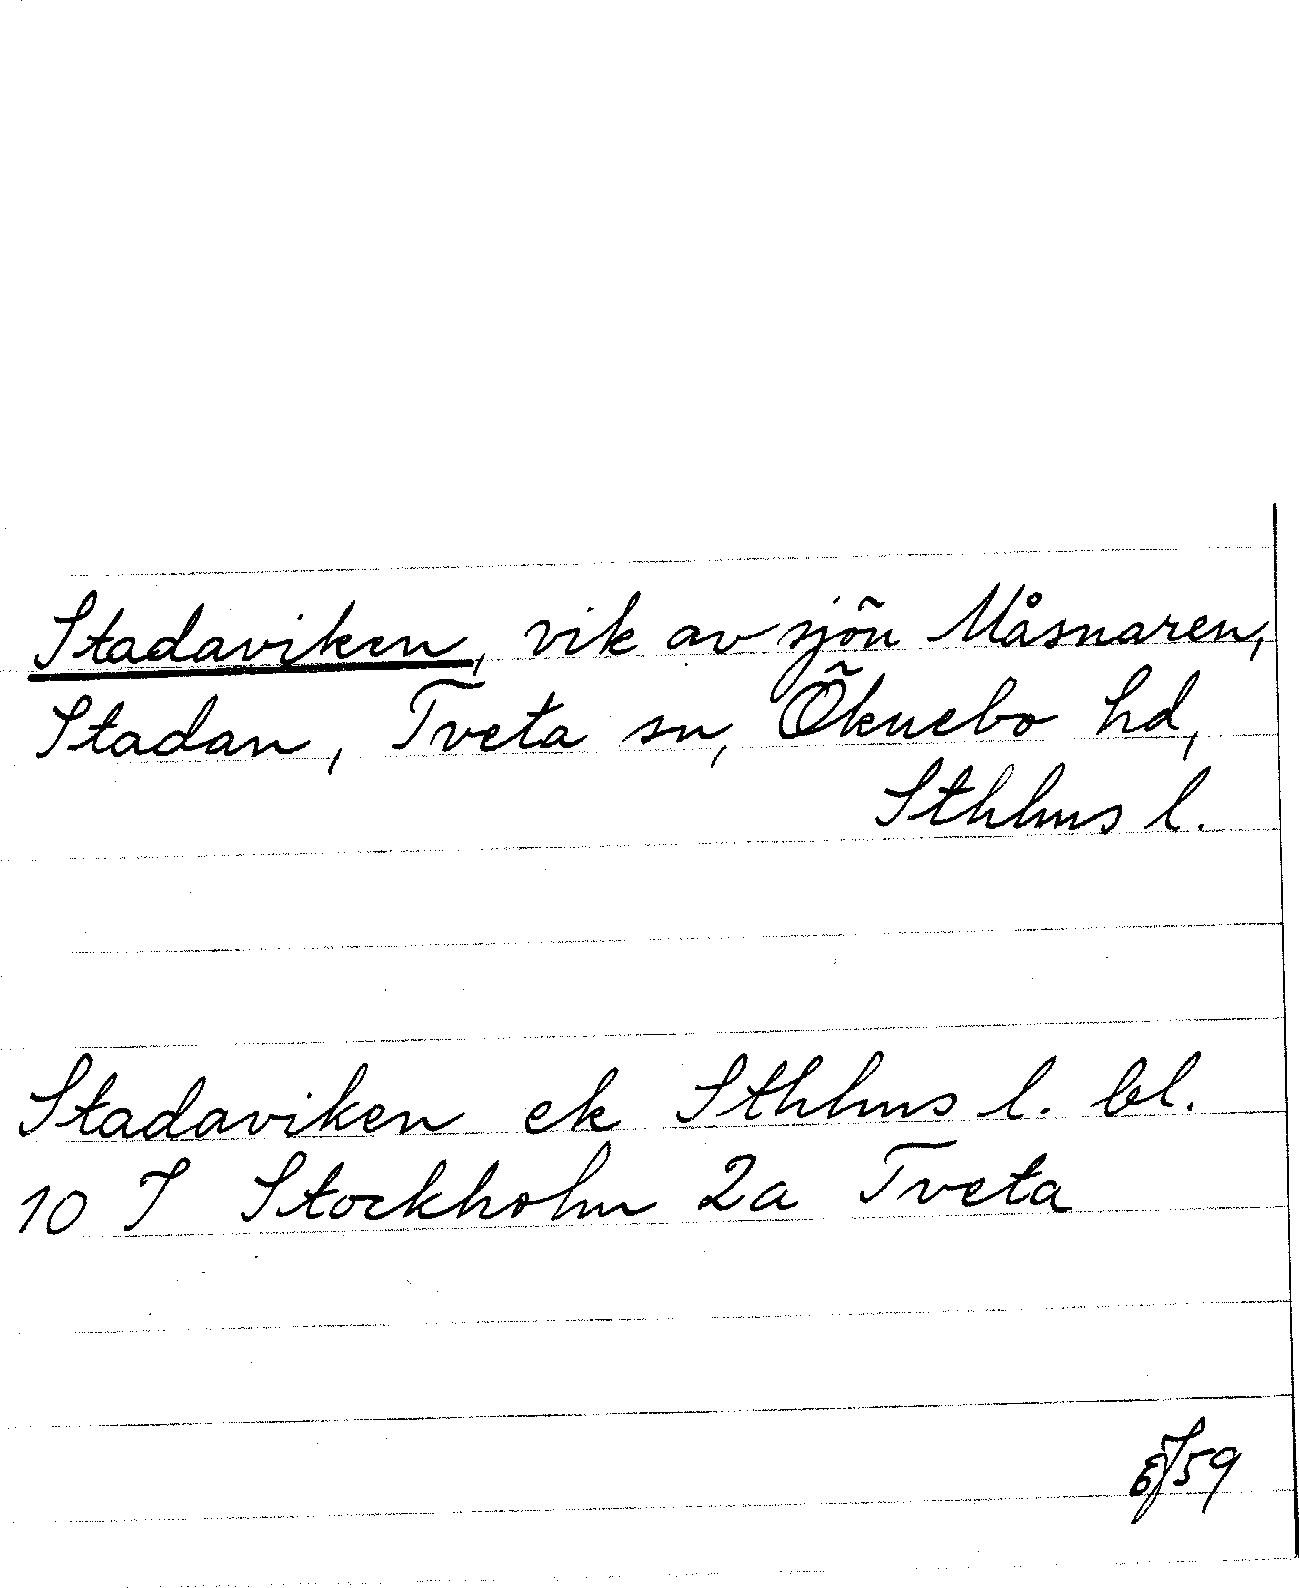 Stadaviken, vik av sjön Måsnaren,
Stadan, Tveta sn, Öknebo hd,
Sthlms l.
Stadaviken ek Sthlms l. bl.
10 I Stockholm 2a Tveta
59